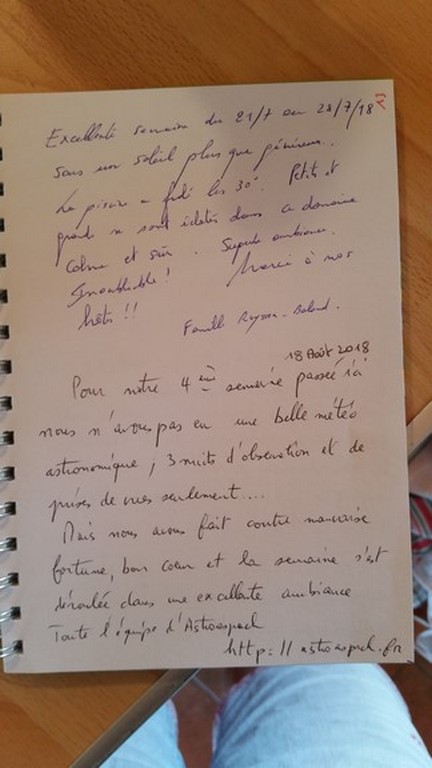 Excellente semaine du 21/7 au 28/7/18
sous un soleil plus que généreux..
La piscine a frôlé les 30°. Petits et
grands se sont éclatés dans ce domaine
calme et sûr. Superbe ambiance.
Inoubliable ! Merci à nos
hôtes !!
Famille
18 Août 2018
Pour notre 4 ème semaine passée ici
nous n'avons pas eu une belle météo
astronomique ; 3 nuits d'observation et de
prises de vues seulement....
Mais nous avons fait contre mauvaise
fortune, bon coeur et la semaine s'est
déroulée dans une excellente ambiance
Toute l'équipe d'Astroaspach
http://astroaspach.fr